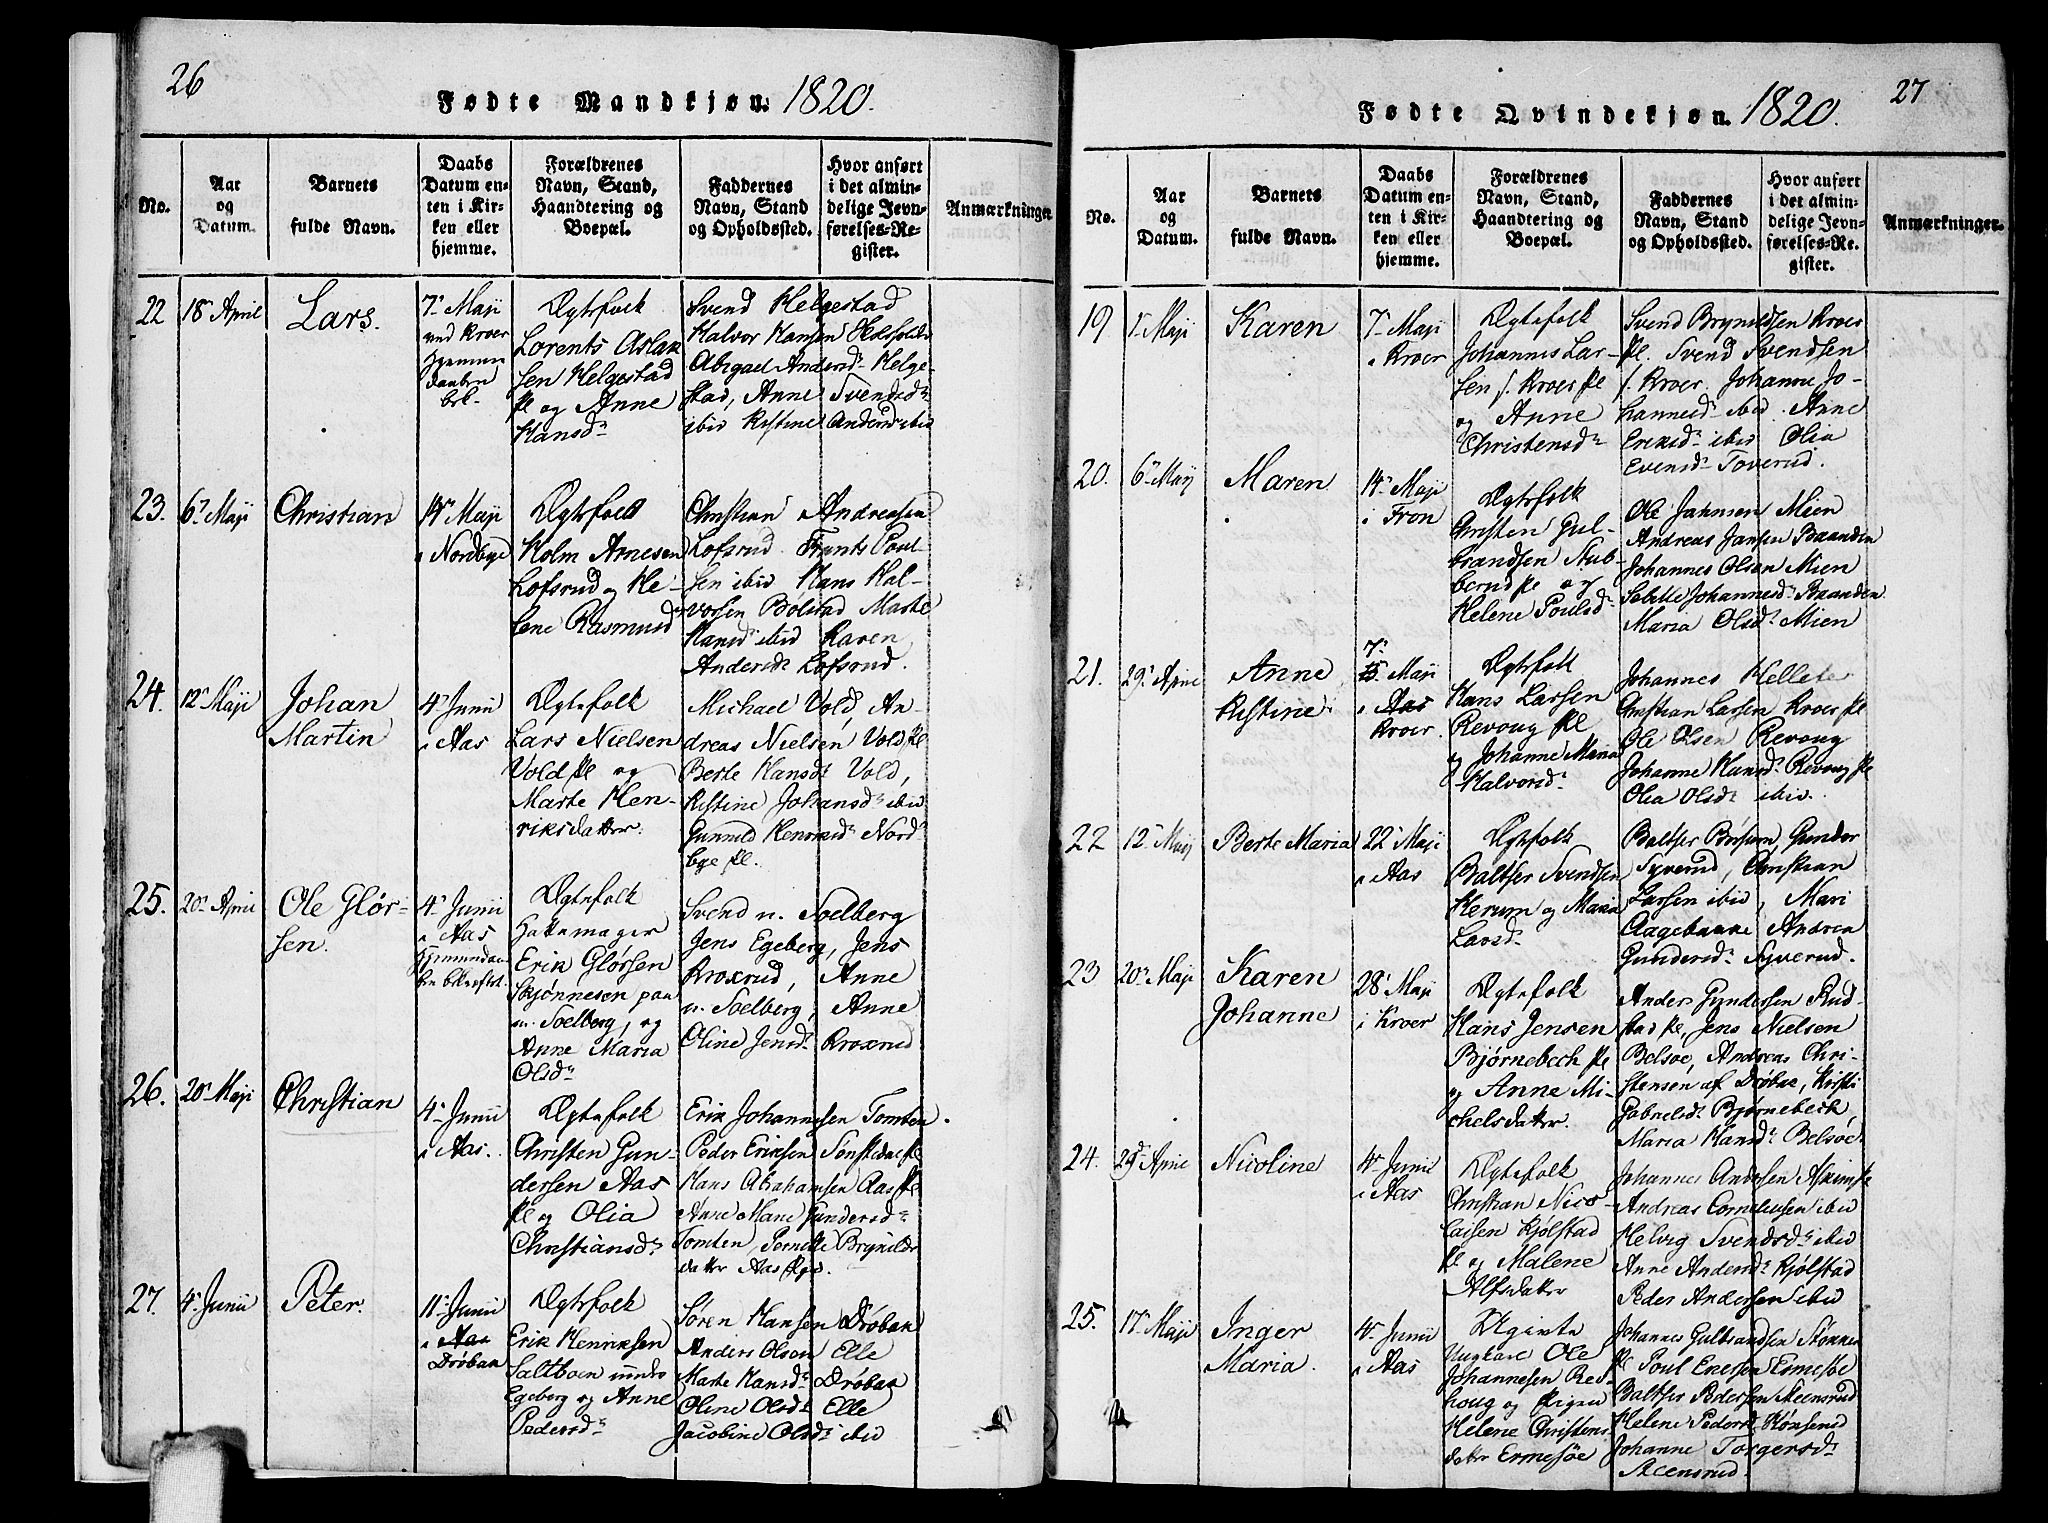 26
Fødte Mandkjøn. 1820.
No.
Aar
og
Datum.
Barnets
fulde Navn.
Daabs
Datum en-
ten i Kir-
ken eller
hjemme.
Forældrenes
Navn, Stand,
Haandtering og
Boepæl.
Faddernes
Navn, Stand
og Opholdssted.
Hvor anført
i det almin-
delige Jevn-
førelses-Re-
gister.
Anmærkninger
22
18 April
Lars.
7de Maji
ved Kroer
Hjemme
daaben
Ægtefolk
Lorents Aslak
sen Helgestad
Pl og Anne
Hansdr
Svend Helgestad
Halvor Hansen
Abigael Andersdr Helge-
stad, Anne Svendsdr
ibid Kistine Andersd ibid
23.
6te Maji
Christian
14de Maji
i Nordbye
Ægtefolk
Holm Arnesen
Lofsrud og He-
lene Rasmusd
Christian Andreasen
Lofsrud. Frants Poul-
sen ibid Hans Hal-
vorsen Bølstad Marte
Hansd ibid Karen
Andersdr Lofsrud.
24.
12te Maji
Johan
Martin
4de Junii
i Aas
Ægtefolk
Lars Nielsen
Vold Pl og
Marte Hen-
riksdatter.
Michael Vold, An-
dreas Nielsen Vold Pl
Berte Hansdr Vold,
Kistine Johansdr ibid
Gunnild Henriksdr Nord-
bye Pl.
25.
20de April
Ole Glør-
sen.
4de Junii
i Aas
Hjemmedaa
ben bekræftet.
Ægtefolk
Hattemager
Erik Glørsen
Skjønnesen paa
n. Soelberg, og
Anne Maria
Olsdr
Svend n. Soelberg
Jens Egeberg, Jens
Kroxrud, Anne
n. Soelberg, Anne
Oline Jensdr Kroxrud
26.
20de Maji
Christian
4de Junii
i Aas.
Ægtefolk
Christen Gun-
dersen Aas
Pl og Olia
Christiansdr
Erik Johannesen Tomten.
Peder Eriksen Sønstebae Pl
Hans Abrahamsen Aas Pl
Anne Marie Gundersdr
Tomten, Pernille Brynilds
datter Aas
27.
4de Junii
Peter.
11te Junii
i Aas
Drøbak
Ægtefolk
Erik Henriksen
Saltboen under
Egeberg og Anne
Pedersdr
Søren Hansen Drøbak
Anders Olsen Elle
Marte Hansdr Drøbak
Oline Olsdr Elle
Jacobine Olsdr ibid
27
Fødte Qvindekjøn. 1820.
No.
Aar
og
Datum.
Barnets
fulde Navn.
Daabs
Datum en-
ten i Kir-
ken eller
hjemme.
Forældrenes
Navn, Stand,
Haandtering og
Boepæl.
Faddernes
Navn, Stand
og Opholdssted.
Hvor anført
i det almin-
delige Jevn-
førelses-Re.
gister.
Anmærkninger.
19
1te Maji
Karen
7de Maji
i Kroer
Ægtefolk
Johannes Lar-
sen s. Kroer Pl
og Anne
Christensdr
Svend Brynildsen Kroer
Pl. Svend Svendsen
s. Kroer. Johanne Jo-
hannesdr ibid. Anne
Eriksdr ibid Olia
Evensdr Toverud.
20.
6te Maij
Maren
14de Maji
i Fron
Ægtefolk
Christen Gul-
brandsen Stub-
berud Pl og
Helene Poulsdr
Ole Jahnsen Mien
Andreas Jansen Braanden
Johannes Olsen Mien
Sebille Johannesdr Braanden
Maria Olsdr Mien
21.
29de April
Anne
Kistine
7de
15 Maji
i Aas
Kroer.
Ægtefolk
Hans Larsen
Revoug Pl
og Johanne Maria
Halvorsdr
Johannes Kelleter
Christian Larsen Kroer Pl
Ole Olsen Revoug
Johanne Hansdr Revoug Pl
Olia Olsdr ibid.
22
12te Maij
Berte Maria
22de Maji
i Aas
Ægtefolk
Baltser Svendsen
Herum og Maria
Larsd
Baltser Børsum, Gunder
Syverud, Christian
Larsen ibid, Mari
Aagebakke Andrea
Gundersdr Syverud.
23
20de Maji
Karen
Johanne
28de Maji
i Kroer
Ægtefolk
Hans Jensen
Bjørnebech Pl
og Anne Mi-
chelsdatter.
Anders Gundersen Rud-
stad Pl, Jens Nielsen
Belsøe, Andreas Chri-
stensen af Drøbak, Kisti
Gabrielsdr Bjørnebeck,
Maria Hansdr Belsøe.
24.
29de April
Nicoline
4de Junii
i Aas
Ægtefolk
Christian Nico-
laisen Kjølstad
Pl og Malene
Alfsdatter
Johannes Andersen Askim Pl
Andreas Corneliusen ibid
Helvig Svendsdr ibid
Anne Andersdr Kjølstad
Peder Andersen ibid
25.
17de Maji
Inger
Maria.
4de Junii
i Aas
Ugivte
Ungkarl Ole
Johannesen Rev-
houg og Pigen
Helene Christens
datter Ermesøe
Johannes Gulbrandsen Stokken
Pl Poul Enersen Ermesøe
Baltser Pedersen Skeensrud
Helene Pedersdr
Johanne Torgersdr
Skeensrud.